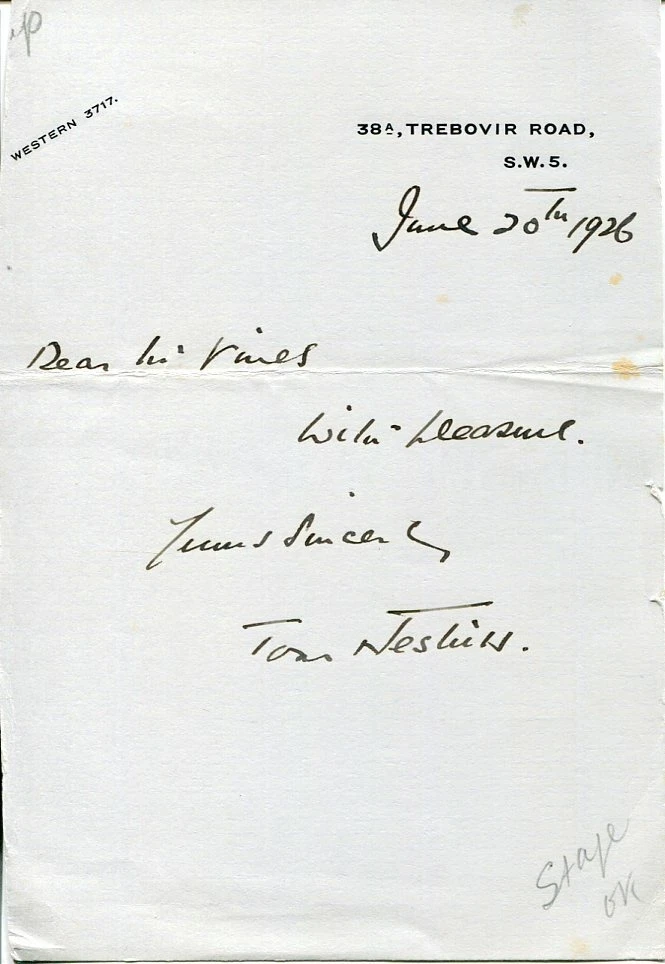 WESTERN 3717.
38A, TREBOVIR ROAD,
S.W.5.
June 20th 1926
Dear Mr Vines
With pleasure.
Yours Sincerely
Tom Nesbitt.
Stage